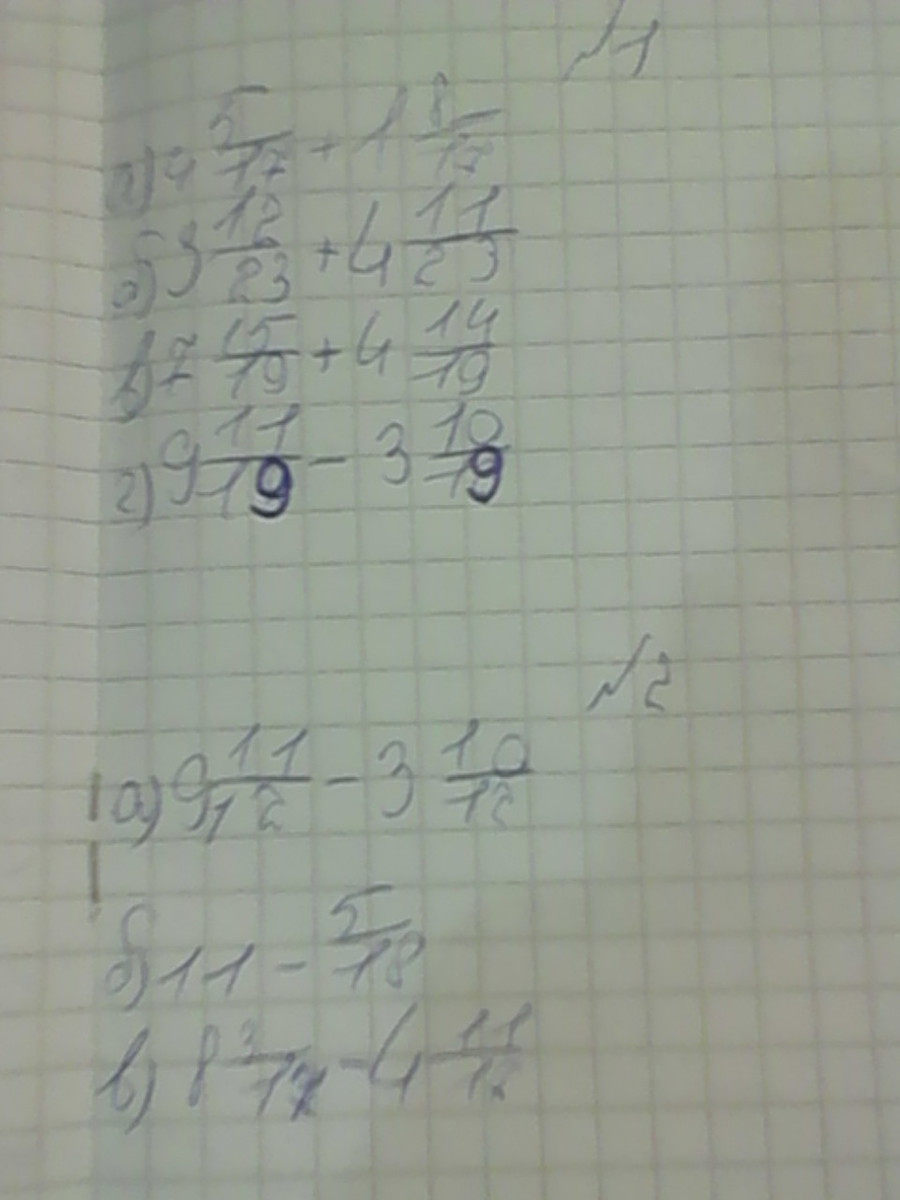 №1
а) 4 5/17 + 1 8/17
б) 3 12/23 + 4 11/23
в) 7 15/19 + 4 14/19
г) 9 11/19 - 3 10/19
№2
а) 9 11/12 - 3 10/12
б) 11 - 5/18
в) 8 3/17 - 4 11/